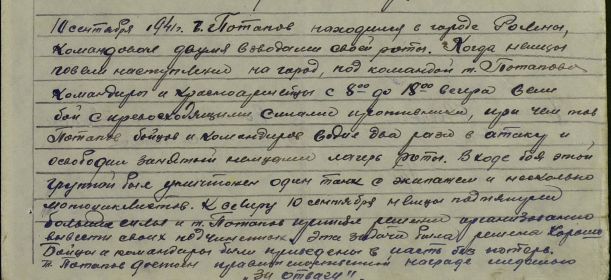 10 сентября 1941г. т. Потапов находился в городе Ромны,
командовал двумя взводами своей роты. Когда немцы
повели наступление на город, под командой т. Потапова
командиры и красноармейцы с 8⁰⁰ до 18⁰⁰ вечера вели
бой с превосходящими силами противника, при чем тов
Потапов бойцов и командиров водил два раза в атаку и
освободил занятой немцами лагерь роты. В ходе боя этой
группой был уничтожен один танк с экипажем и несколько
мотоциклистов. К вечеру 10 сентября немцы подтянули
большие силы и т. Потапов принял решение организованно
вывести своих подчиненных. Эта задача была решена хорошо
Бойцы и командиры были приведены в часть без потерь.
т. Потапов достоин правительственной награде медалью
"За отвагу".